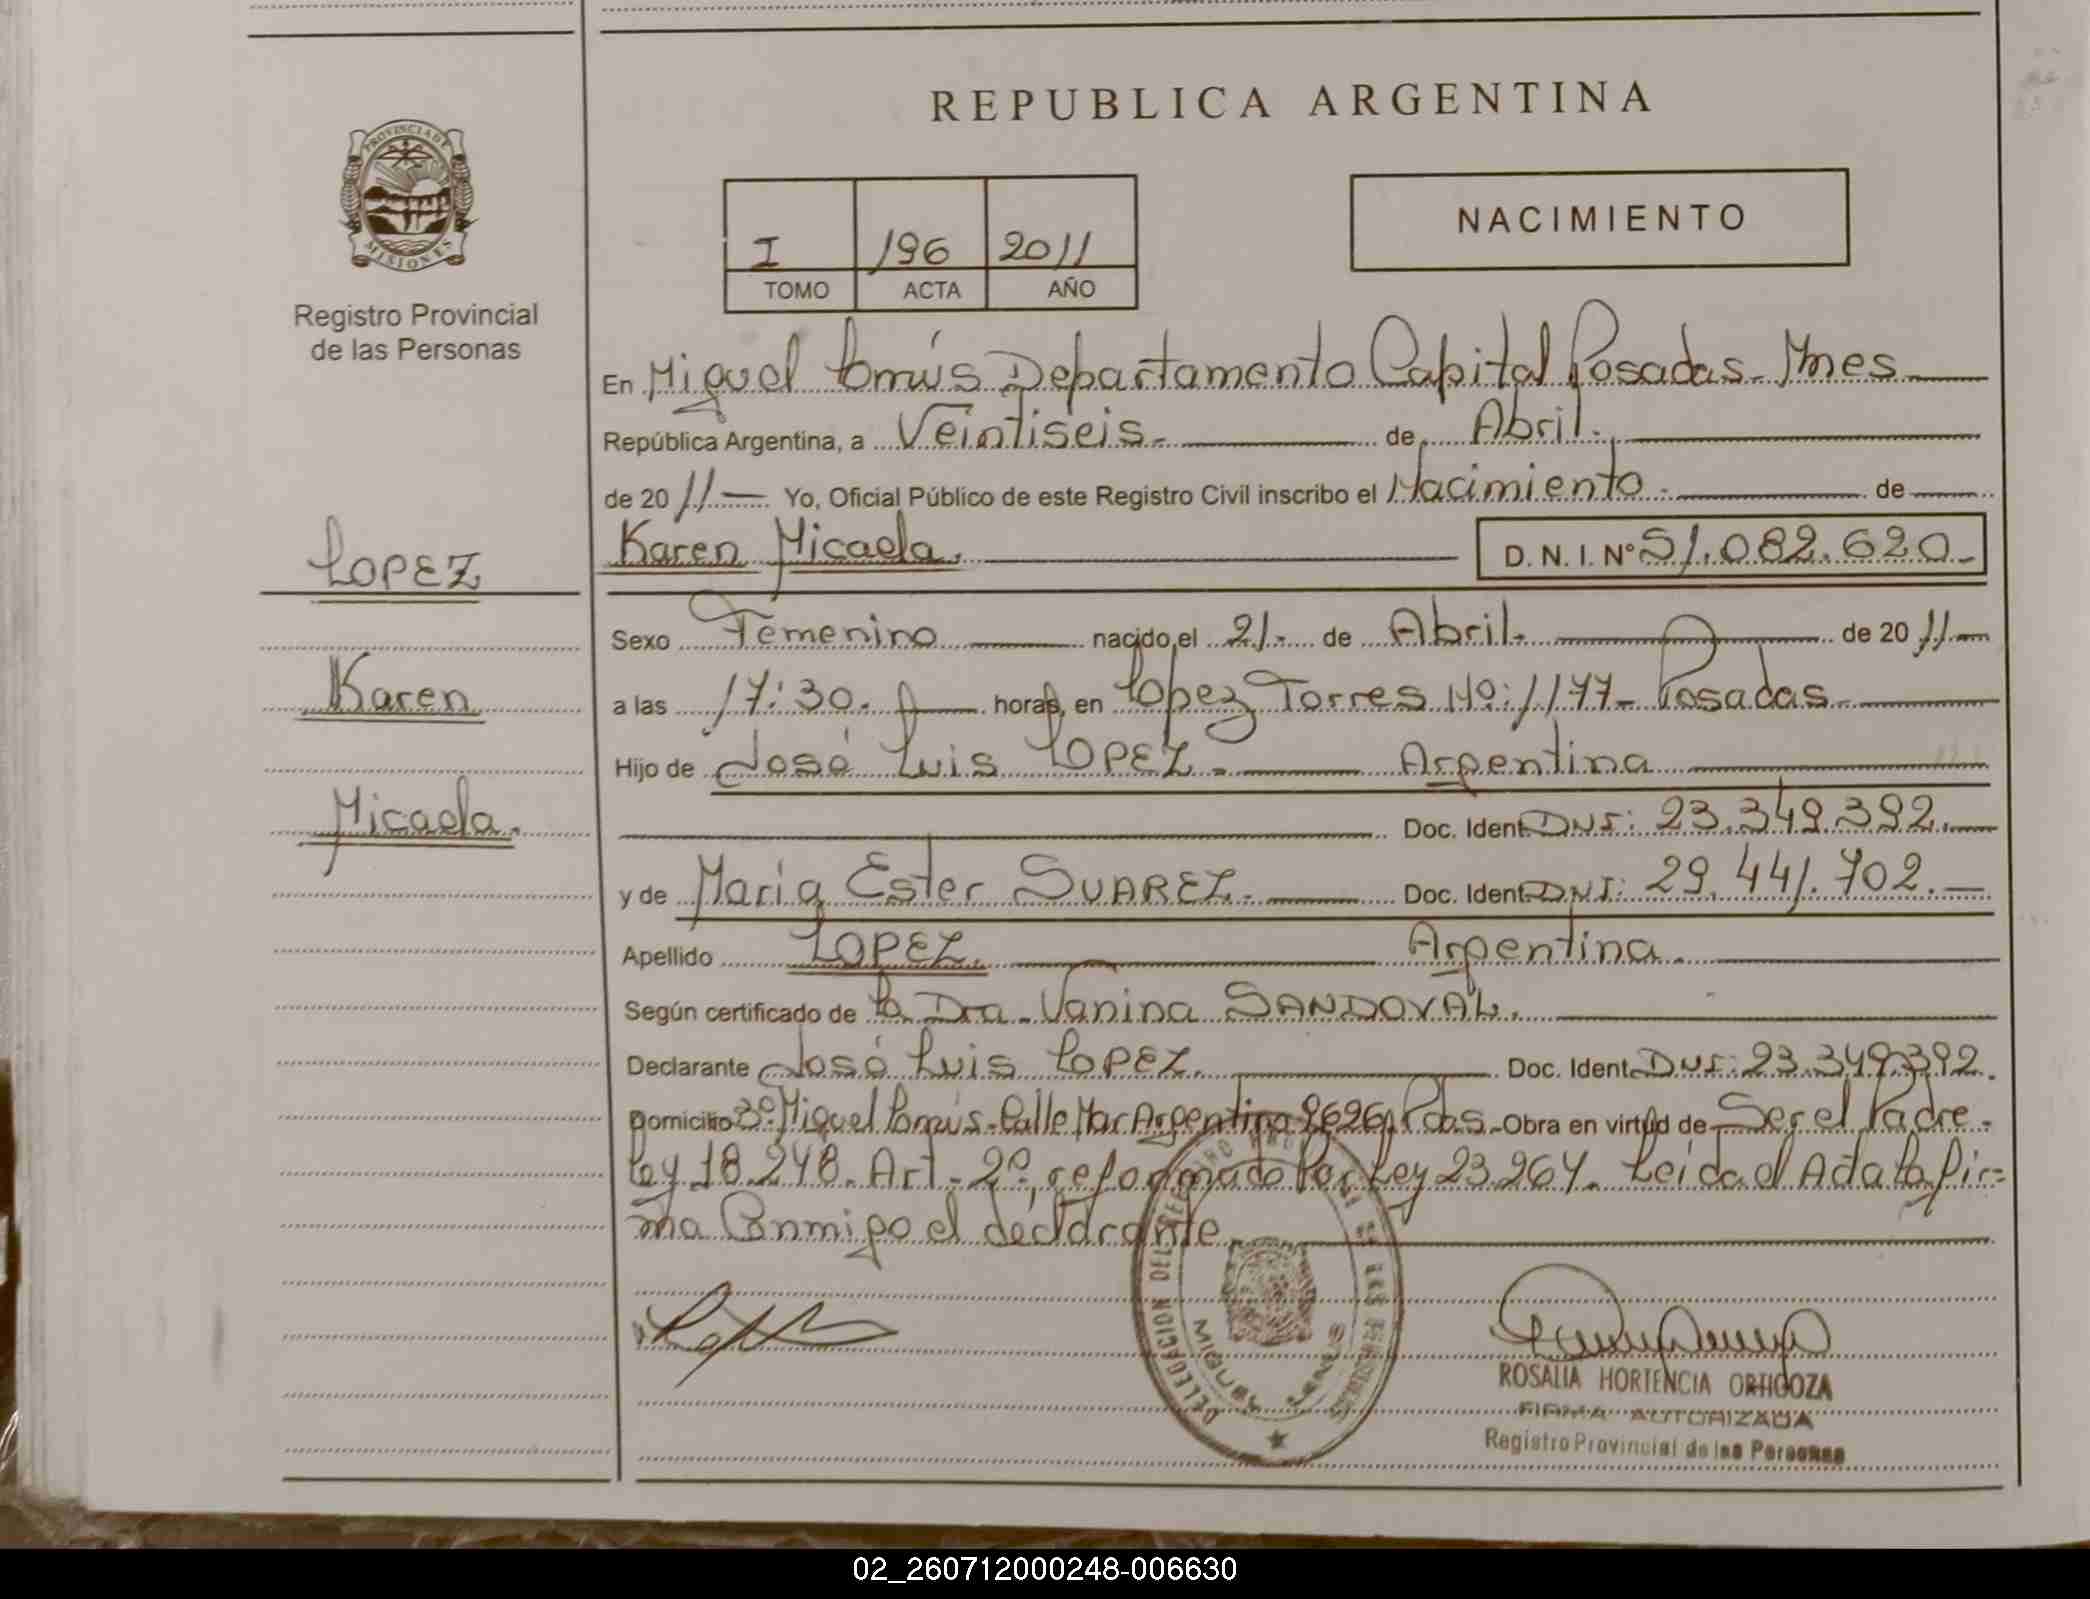 REPUBLICA ARGENTINA
PROVINCIA DE
MISIONES
Registro Provincial
de las Personas
I 196 2011
TOMO ACTA AÑO
NACIMIENTO
En Miguel Lanús Departamento Capital Posadas - Mnes
República Argentina, a Veintiseis de Abril.
de 20 11 Yo, Oficial Público de este Registro Civil inscribo el Nacimiento de
Karen Micaela. D. N. I. Nº 51.082.620
LOPEZ
Karen
Micaela.
Sexo Femenino nacido el 21 de Abril de 20 11
a las 17:30. horas, en Lopez Torres Nº: 1177 - Posadas
Hijo de José Luis LOPEZ. Argentina
Doc. Ident. DNI: 23.349.392.
y de Maria Ester SUAREZ. Doc. Ident. DNI: 29.441.702.
Apellido LOPEZ. Argentina.
Según certificado de la Dra. Vanina SANDOVAL.
Declarante José Luis LOPEZ. Doc. Ident. DNI: 23.349.392.
Domicilio Bº. Miguel Lanús - Calle Mar Argentino 2626 Pdas. Obra en virtud de Ser el Padre.
Ley 18.248. Art. 2º, reformado por Ley 23.264. Leida el Acta la fir=
ma Conmigo el declarante.
DELEGACION DEL REGISTRO DE LAS PERSONAS
MIGUEL LANUS
ROSALIA HORTENCIA ORTIGOZA
FIRMA AUTORIZADA
Registro Provincial de las Personas
02_260712000248-006630